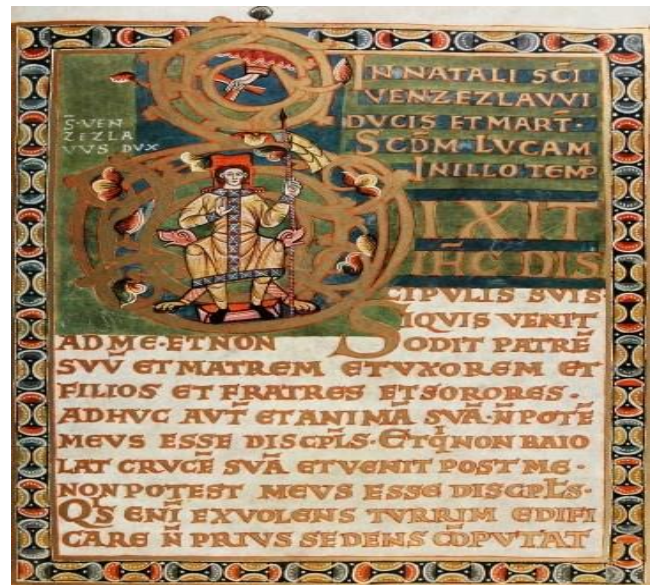 S̄·VEN
ZEZLA
VVS DVX
IN NATALI SC̄I
VENZEZLAVVI
DVCIS ET MART̄·
SCD̄M LVCAM
IN ILLO TEMP̄
DIXIT
IH̄C DIS
CIPVLIS SVIS·
SIQVIS VENIT
AD ME·ET NON ODIT PATRĒ
SVV̄ ET MATREM ET VXOREM ET
FILIOS ET FRATRES ET SORORES·
ADHVC AVT̄ ET ANIMĀ SVĀ·N̄ POTĒ
MEVS ESSE DISCPL̄S·ET Q̄ NON BAIO
LAT CRVCĒ SVĀ ET VENIT POST ME·
NON POTEST MEVS ESSE DISCPL̄S·
QS ENĪ EX VOLENS TVRRIM EDIFI
CARE N̄ PRIVS SEDENS CŌPVTAT